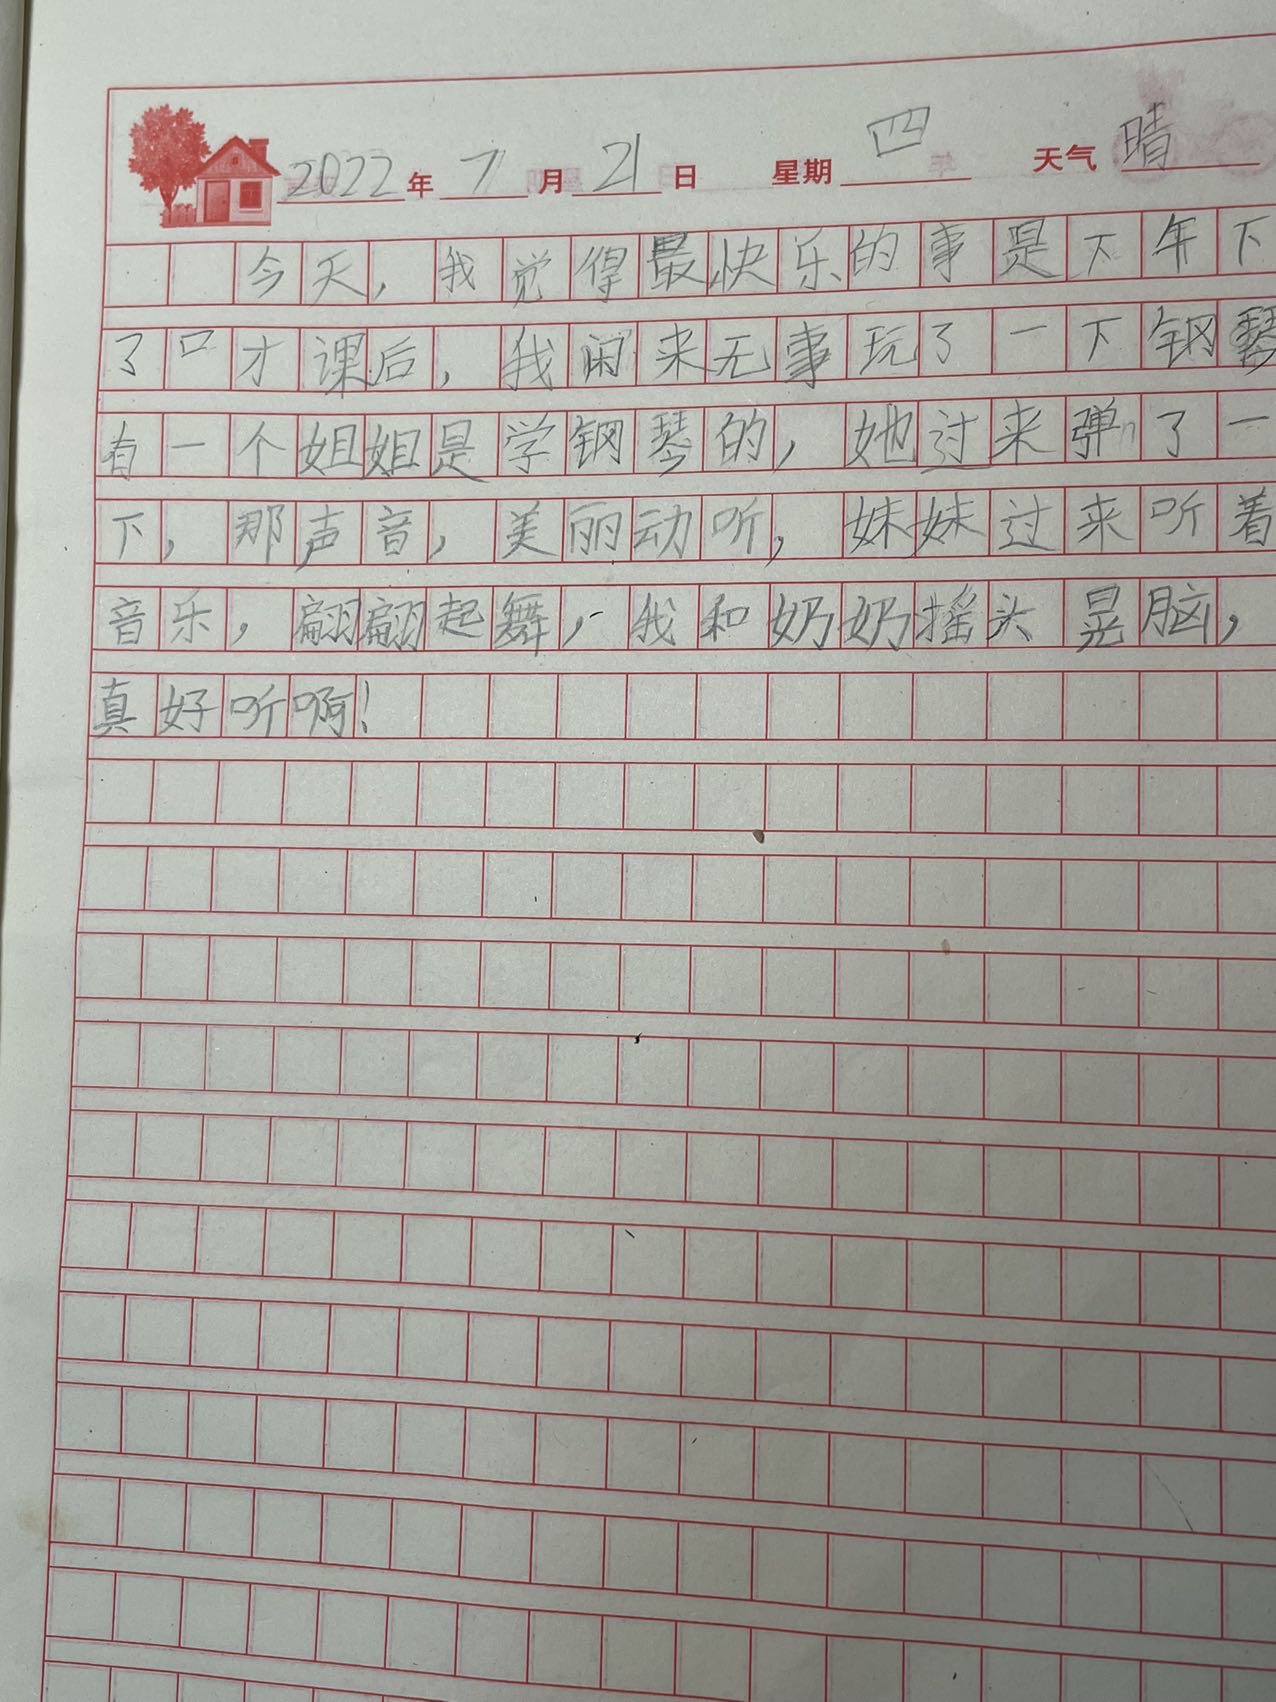 2022年 7月 21日 星期四 天气 晴
今天，我觉得最快乐的事是下午下
了口才课后，我闲来无事玩了一下钢琴
有一个姐姐是学钢琴的，她过来弹了一
下，那声音，美丽动听，妹妹过来听着
音乐，翩翩起舞，我和奶奶摇头晃脑，
真好听啊！